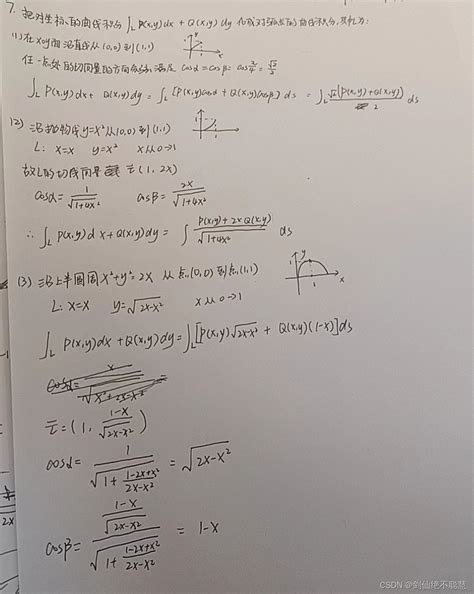 7. 把对坐标的曲线积分 ∫_L P(x,y)dx + Q(x,y)dy 化成对弧长的曲线积分,其中L为:
(1) 在xoy面沿直线从(0,0)到(1,1)
任一点处的切向量的方向余弦 满足 cosα = cosβ = cos π/4 = √2/2
∫_L P(x,y)dx + Q(x,y)dy = ∫_L [P(x,y)cosα + Q(x,y)cosβ] ds = ∫_L √2(P(x,y)+Q(x,y))/2 ds
(2) 沿抛物线 y=x² 从(0,0)到(1,1)
L: x=x y=x² x从0→1
故L的切线向量 τ=(1, 2x)
cosα = 1/√(1+4x²) cosβ = 2x/√(1+4x²)
∴ ∫_L P(x,y)dx+Q(x,y)dy = ∫ (P(x,y)+2xQ(x,y))/√(1+4x²) ds
(3) 沿上半圆周 x²+y²=2x 从点(0,0)到点(1,1)
L: x=x y=√(2x-x²) x从0→1
∫_L P(x,y)dx+Q(x,y)dy = ∫_L [P(x,y)√(2x-x²) + Q(x,y)(1-x)]ds
τ = (1, (1-x)/√(2x-x²))
cosα = 1/√(1+(1-2x+x²)/(2x-x²)) = √(2x-x²)
cosβ = ((1-x)/√(2x-x²))/√(1+(1-2x+x²)/(2x-x²)) = 1-x
CSDN @剑仙绝不聪慧